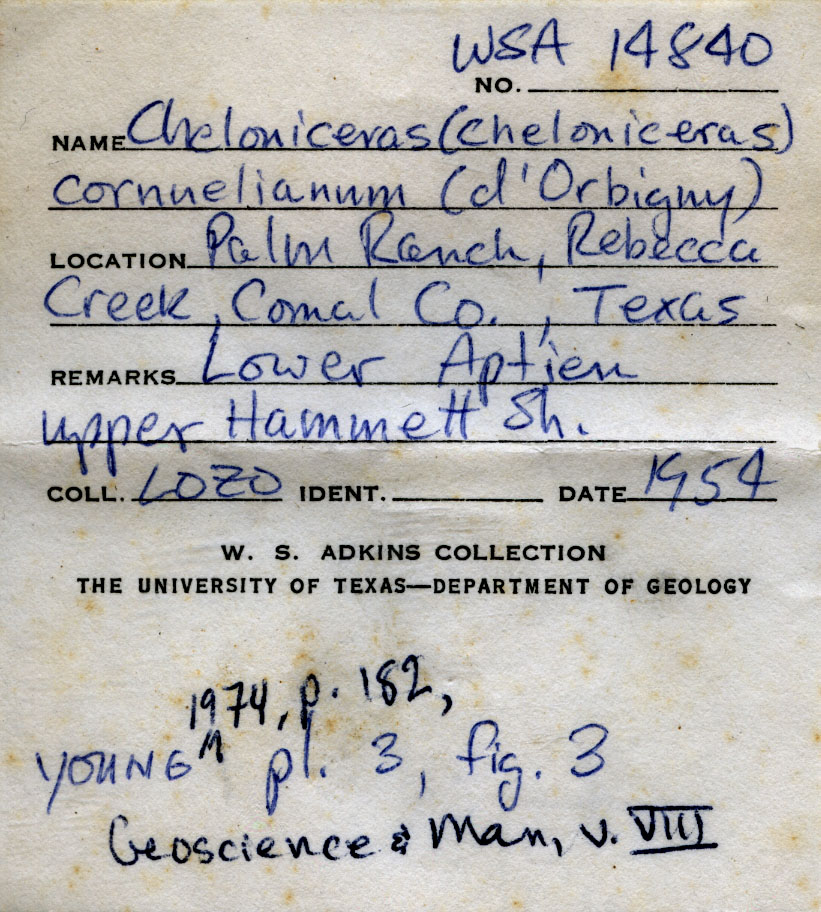 WSA 14840
NO.
NAME Cheloniceras (Cheloniceras)
cornuelianum (d'Orbigny)
LOCATION Palm Ranch, Rebecca
Creek, Comal Co., Texas
REMARKS Lower Aptien
upper Hammett Sh.
COLL. LOZO IDENT. DATE 1954
W. S. ADKINS COLLECTION
THE UNIVERSITY OF TEXAS—DEPARTMENT OF GEOLOGY
1974, p. 182,
YOUNG ^ pl. 3, fig. 3
Geoscience & Man, v. VIII